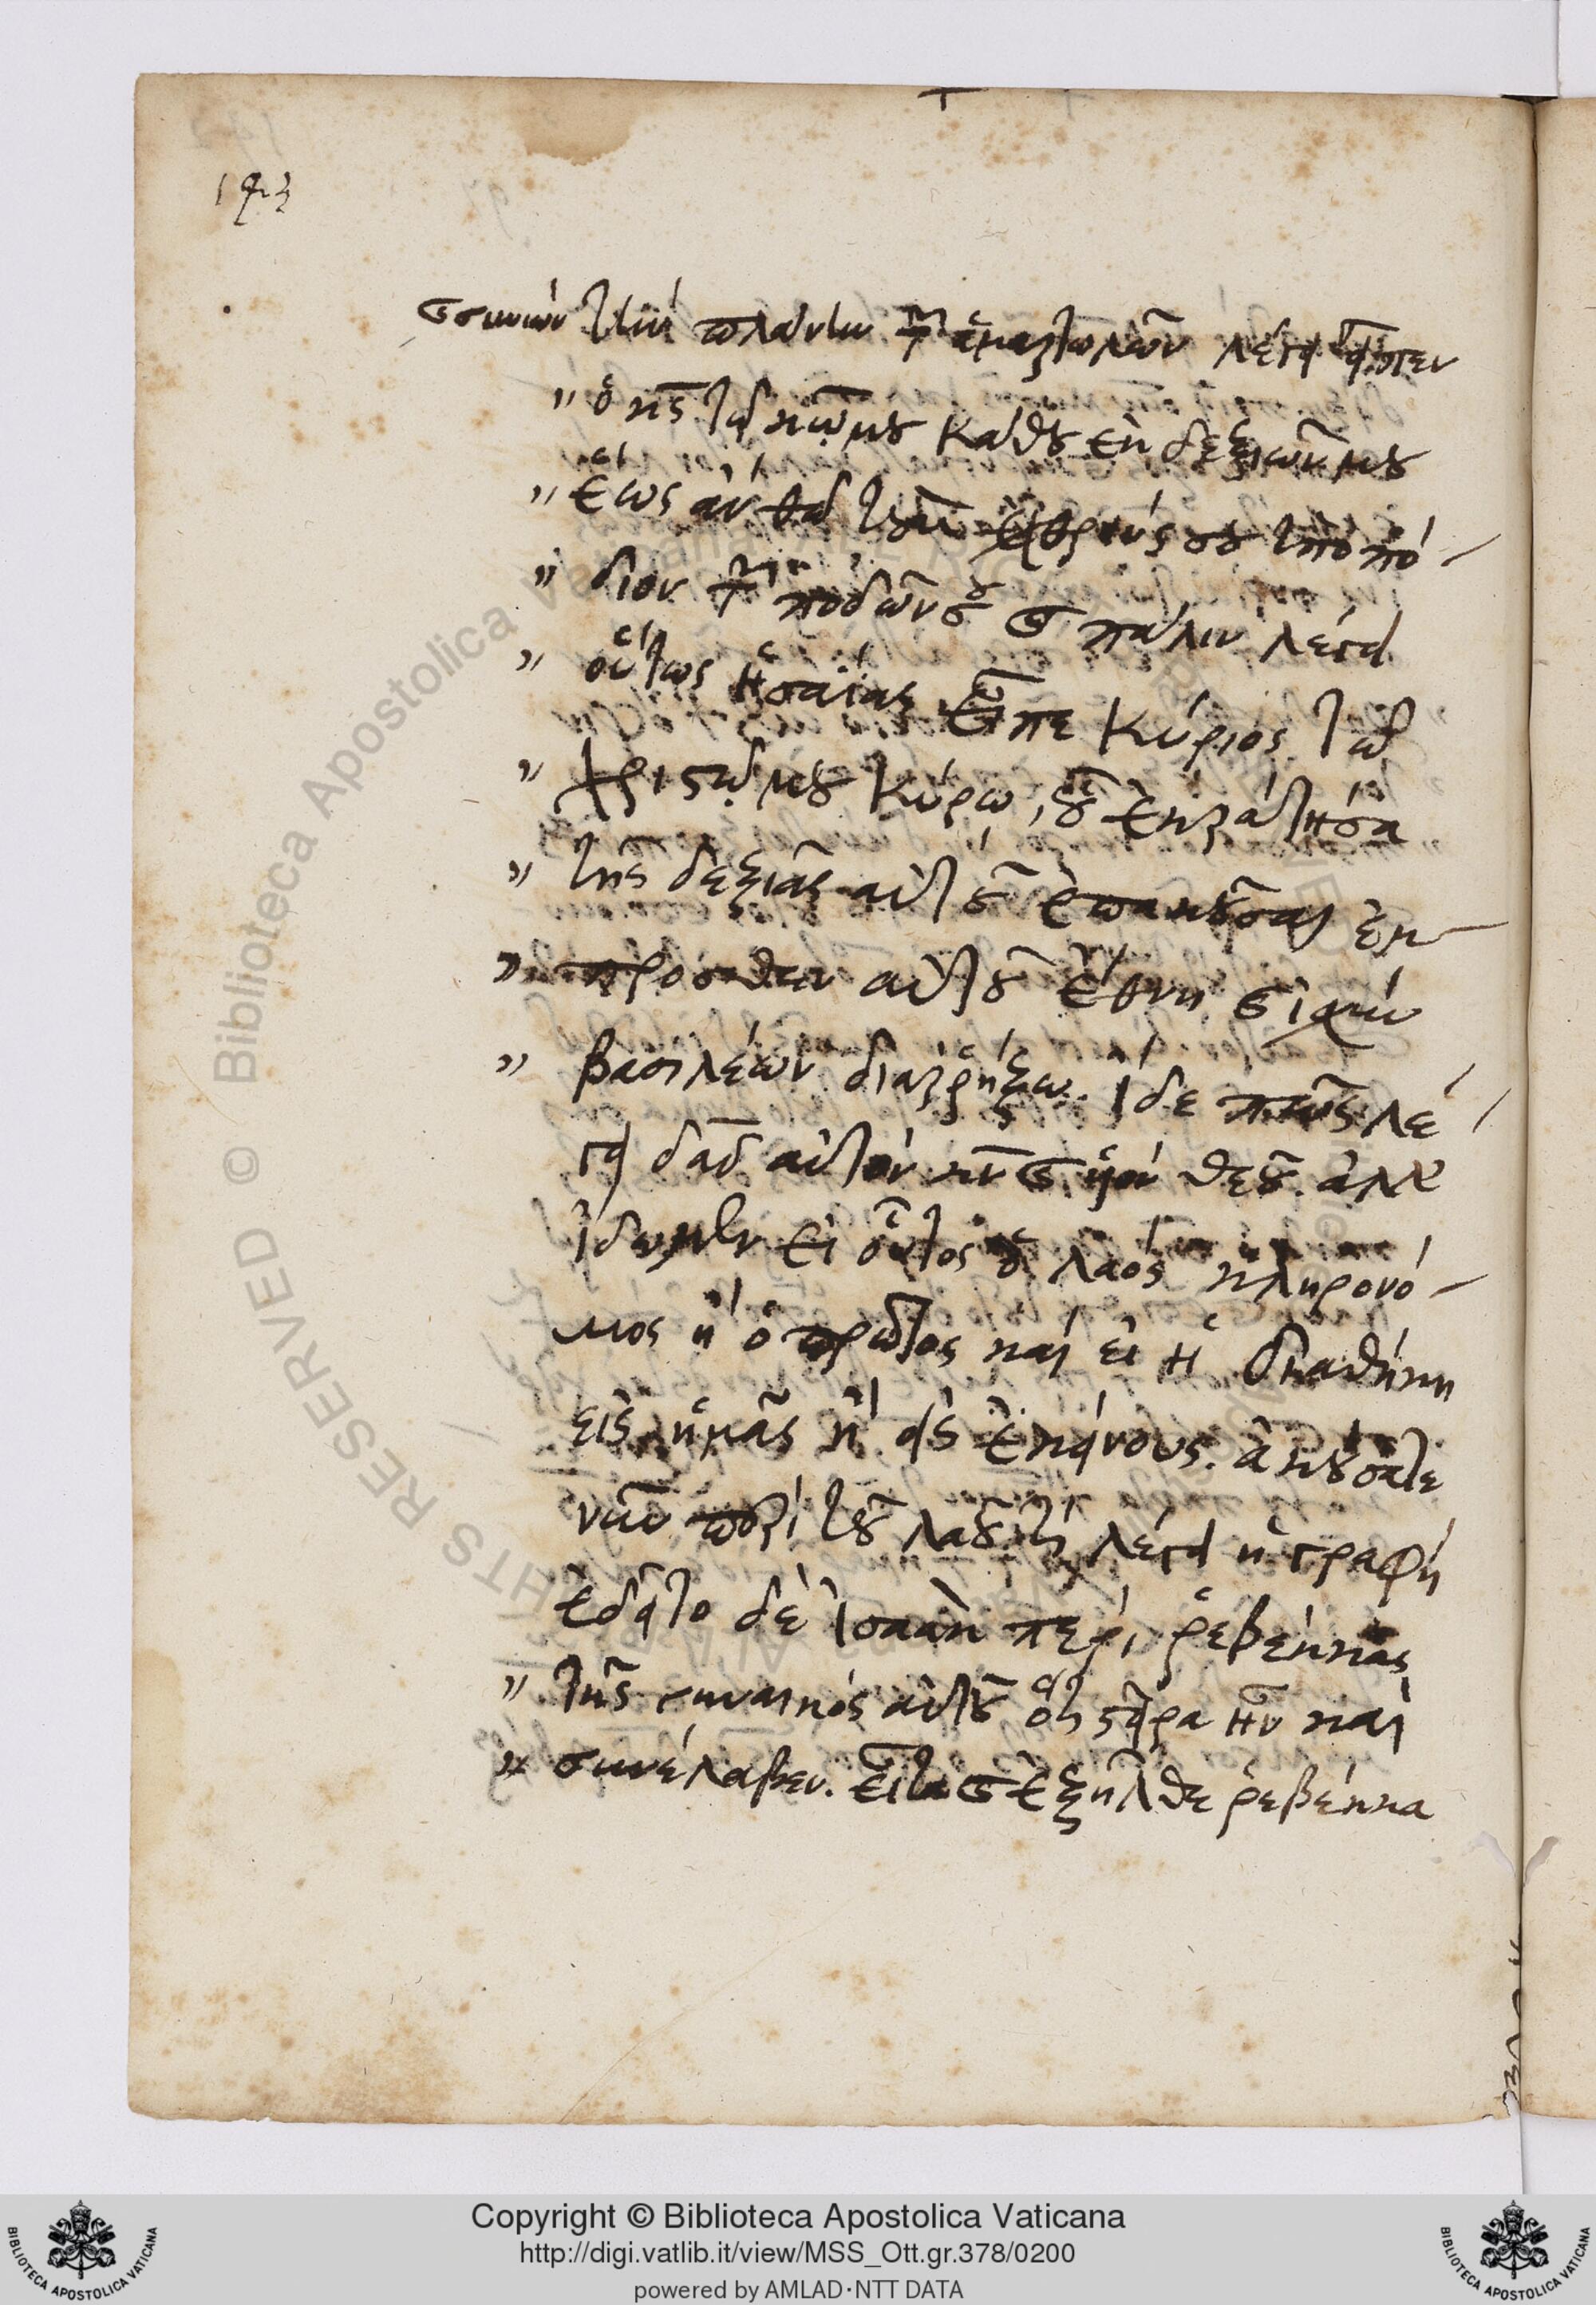 193
συνιὼν τὴν πλάνην τῶν ἁμαρτωλῶν λέγει εἶπεν
" ὁ κς τῷ κῳ μου κάθου ἐκ δεξιῶν μου
" ἕως ἂν θῶ τοὺς ἐχθρούς σου ὑποπό-
" διον τῶν ποδῶν σου καὶ πάλιν λέγει
" οὕτως ἡσαΐας εἶπε κύριος τῷ
" χριστῷ μου κύρῳ, οὗ ἐκράτησα
" τῆς δεξιᾶς αὐτοῦ ἐπακοῦσαι ἐμ-
" προσθεν αὐτοῦ ἔθνη καὶ ἰσχὺν
" βασιλέων διαρρήξω. ἴδε πῶς λέ-
γει δαδ αὐτὸν κν καὶ υἱὸν θεοῦ. ἀλλ
ἴδωμεν εἰ οὗτος ὁ λαὸς κληρονό-
μος ἢ ὁ πρῶτος καὶ εἰ ἡ διαθήκη
εἰς ἡμᾶς ἢ εἰς ἐκείνους. ἀκούσατε
νῦν περὶ τοῦ λαοῦ τί λέγει ἡ γραφή
ἐδεῖτο δὲ ἰσαὰκ περὶ ῥεβέκκας
" τῆς γυναικός αὐτοῦ ὅτι στεῖρα ἦν καὶ
" συνέλαβεν. εἶτα καὶ ἐξῆλθε ῥεβέκκα
Biblioteca Apostolica Vaticana
© Biblioteca Apostolica Vaticana
ALL RIGHTS RESERVED
Copyright © Biblioteca Apostolica Vaticana
http://digi.vatlib.it/view/MSS_Ott.gr.378/0200
powered by AMLAD·NTT DATA
BIBLIOTECA APOSTOLICA VATICANA
BIBLIOTECA APOSTOLICA VATICANA